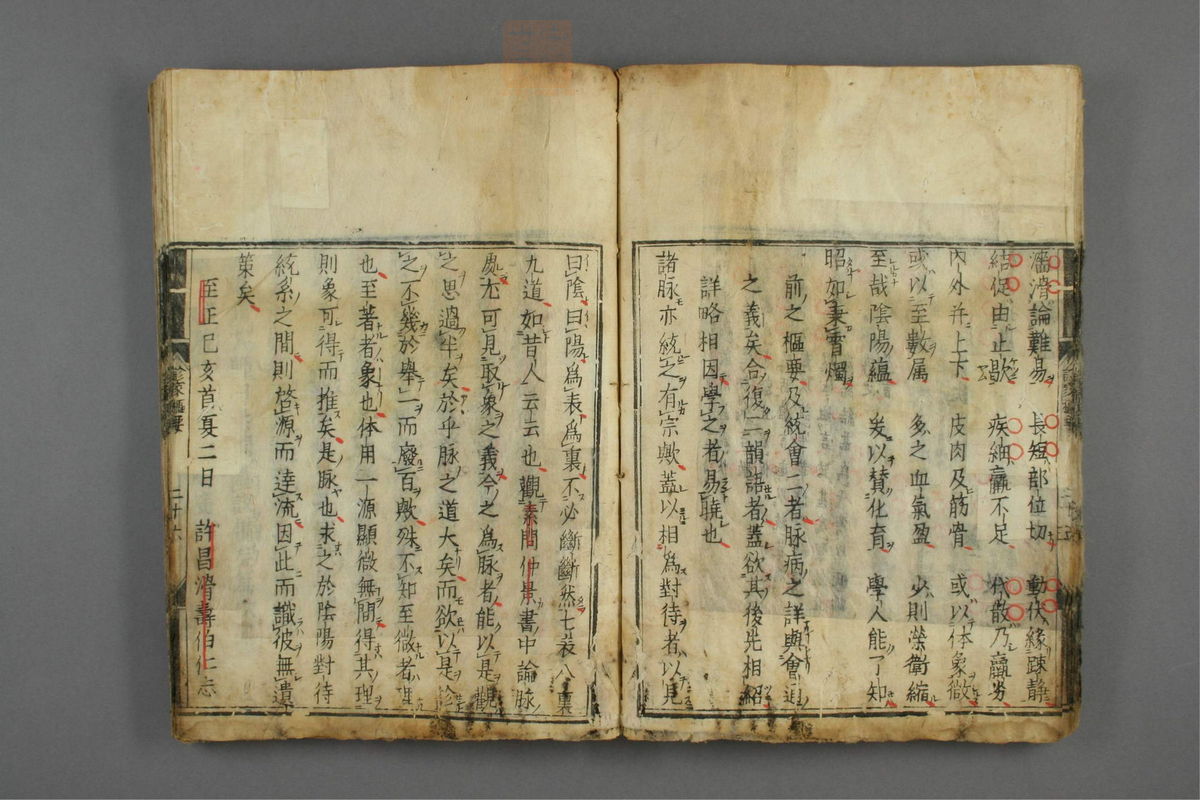 濇滑論難易 長短部位切 動伏縁踈静
結促由止歇 疾細羸不足 代散乃羸劣
內外并上下 皮肉及筋骨 或以体象微
或以至數属 多之血氣盈 少則荣衛縮
至哉陰陽蘊 爰以賛化育 學人能了知
昭如秉雪燭
前之樞要及統會二者脉病之詳與會通
之義矣合復二韻語者蓋欲其後先相紹
詳略相因學之者易曉也
諸脉亦統之有宗歟蓋以相為對待者以見
曰陰曰陽為表為裏不必斷斷然七表八裏
九道如昔人云云也觀素問仲景書中論脉
處尤可見取象之義今之為脉者能以是觀
之思過半矣於乎脉之道大矣而欲以是
之不幾於舉一而廢百歟殊不知至微者
也至著者象也体用一源顯微無間得其理
則象可得而推矣是脉也求之於陰陽對待
統系之間則啓源而達流因此而識彼無遺
策矣
至正己亥首夏二日 許昌滑壽伯仁志
二十六